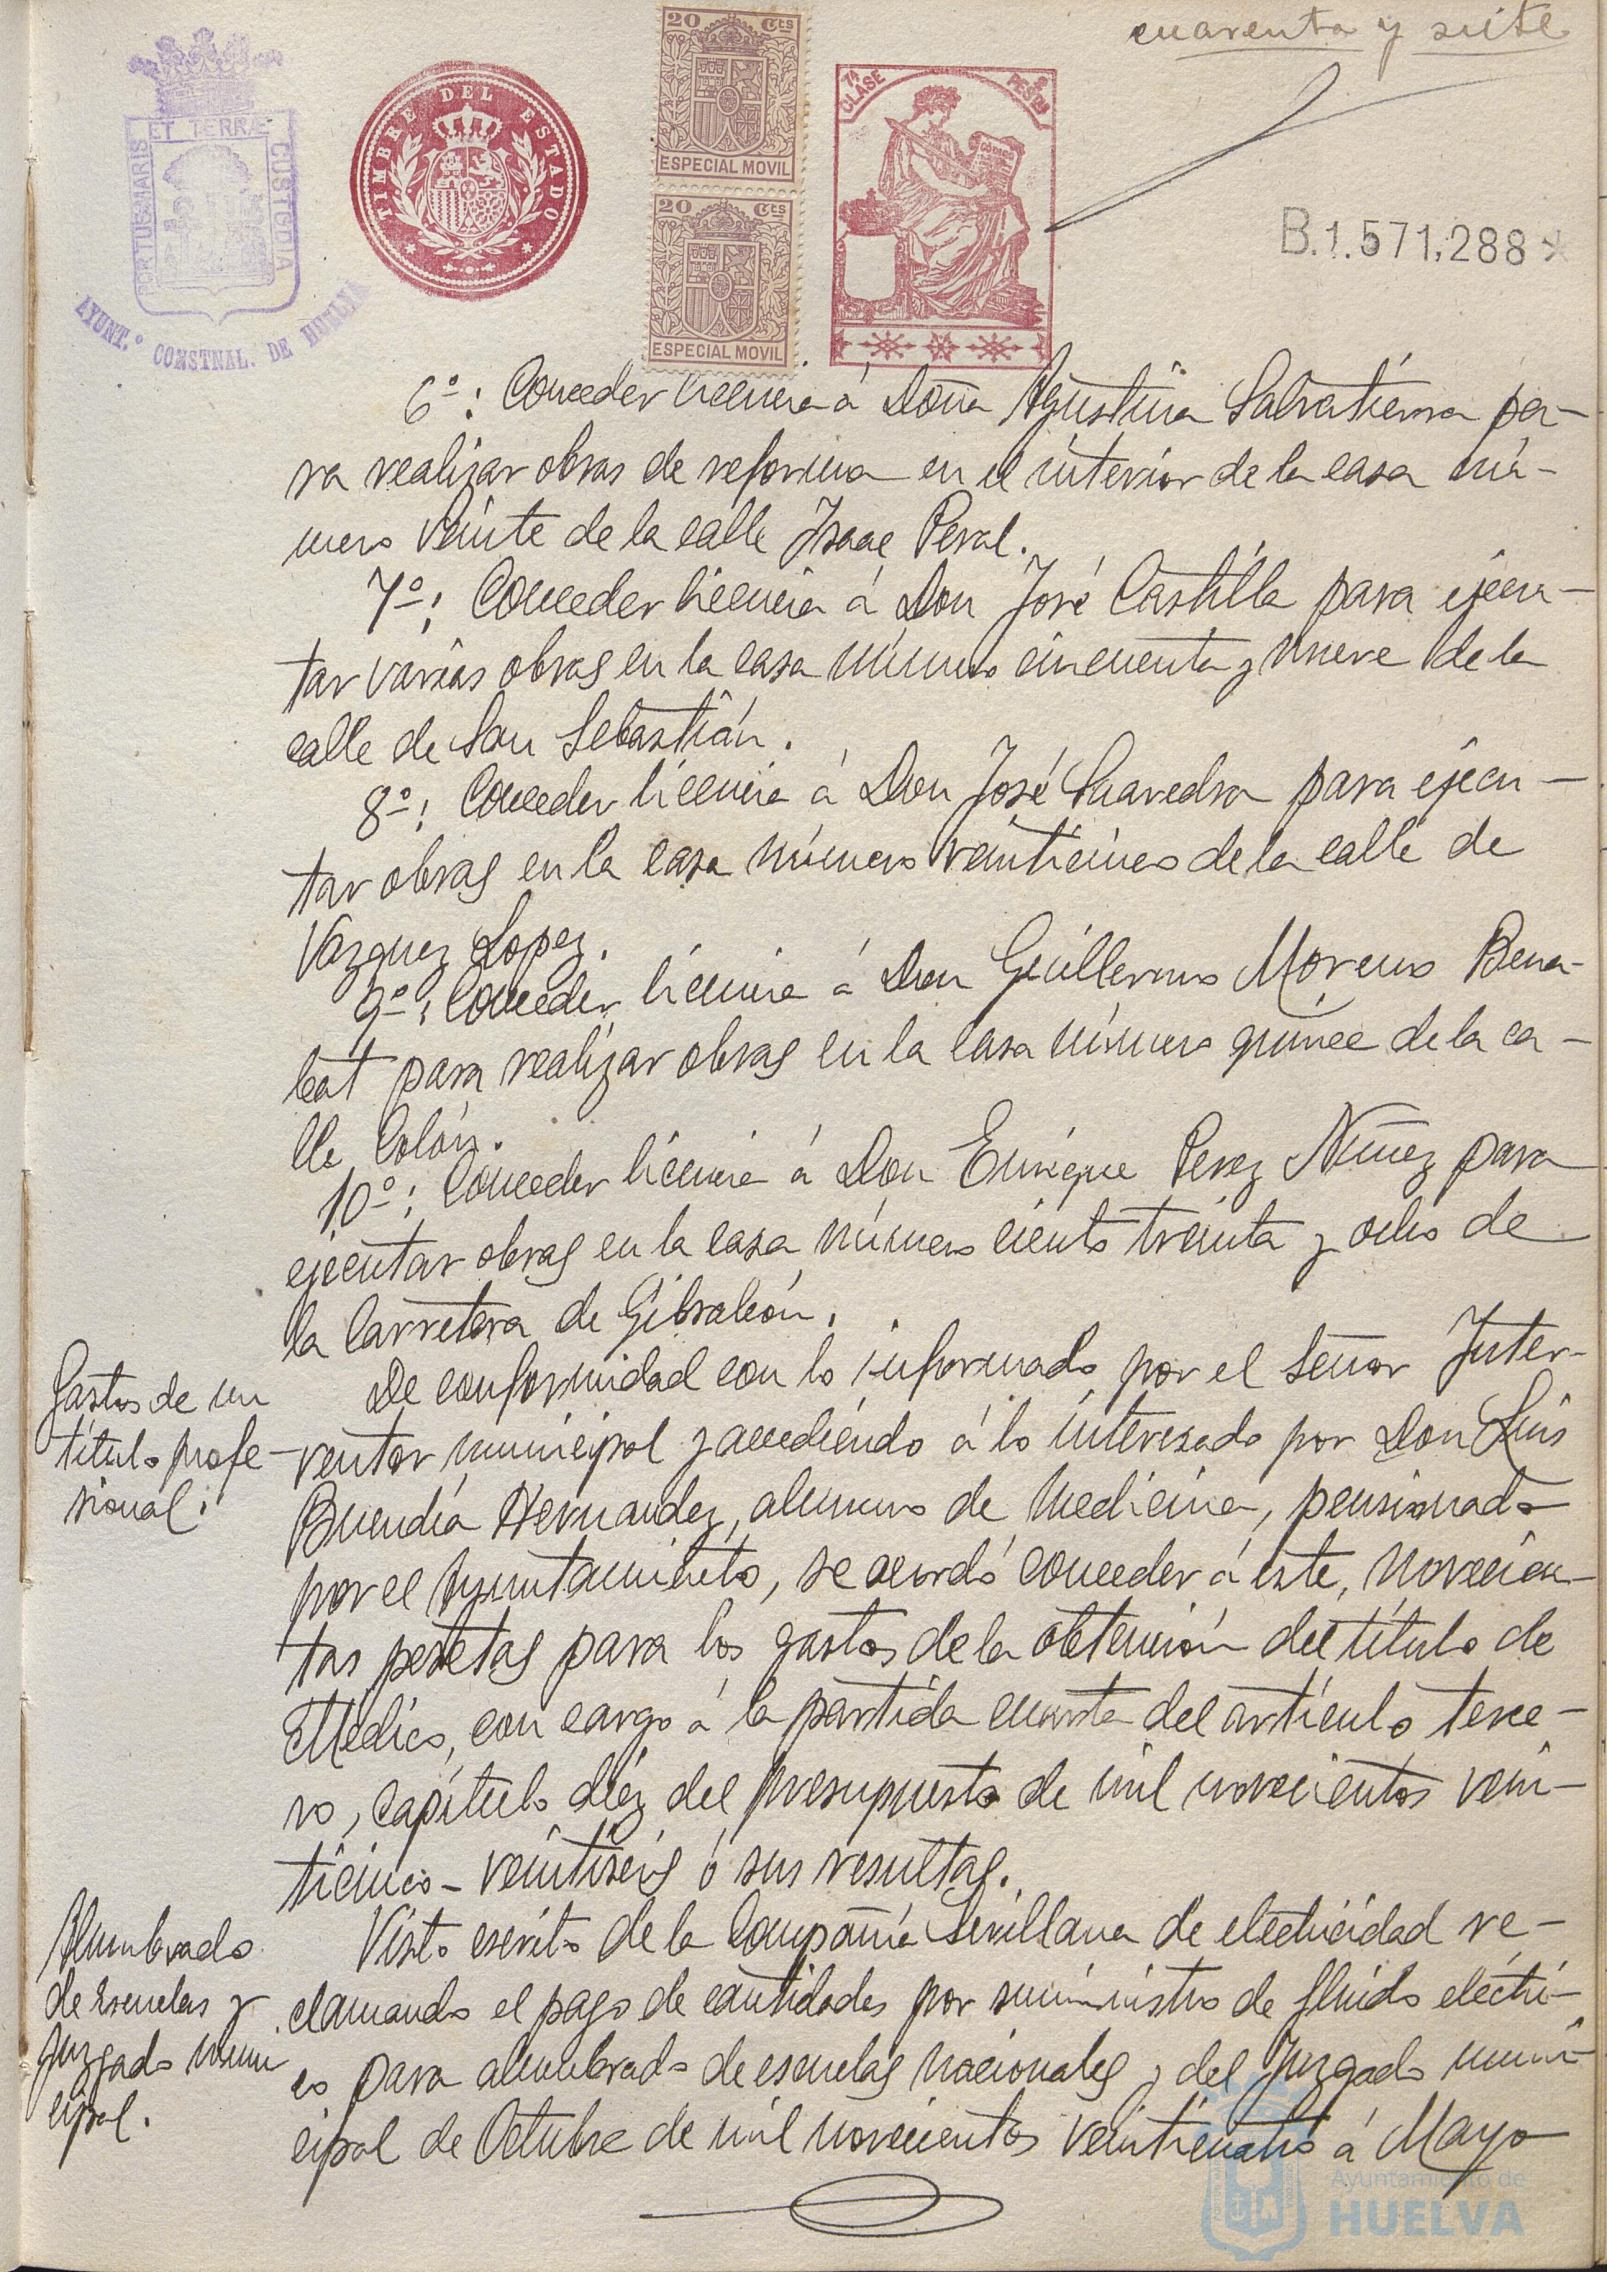 cuarenta y siete
20 Cts
ESPECIAL MOVIL
20 Cts
ESPECIAL MOVIL
TIMBRE DEL ESTADO
7ª CLASE
2 PESTAS
CODIGO
PORTUS MARIS ET TERRÆ CUSTODIA
AYUNT.º CONSTNAL. DE HUELVA
B.1.571.288*
6º: Conceder licencia á Doña Agustina Salvatierra pa-
ra realizar obras de reforma en el interior de la casa nú-
mero veinte de la calle Isaac Peral.
7º: Conceder licencia á Don José Castilla para ejecu-
tar varias obras en la casa número cincuenta y nueve de la
calle de San Sebastián.
8º: Conceder licencia á Don José Saavedra para ejecu-
tar obras en la casa número veinticinco de la calle de
Vázquez Lopez.
9º: Conceder licencia á Don Guillermo Moreno Bena-
bat para realizar obras en la casa número quince de la ca-
lle Colón.
10º: Conceder licencia á Don Enrique Perez Núñez para
ejecutar obras en la casa número ciento treinta y ocho de
la Carretera de Gibraleón.
Gastos de un
título profe-
sional.
De conformidad con lo informado por el Señor Inter-
ventor municipal y accediendo á lo interesado por Don Luis
Buendía Hernandez, alumno de Medicina, pensionado
por el Ayuntamiento, se acordó conceder á éste, novecien-
tas pesetas para los gastos de la obtención del título de
Médico, con cargo á la partida cuarta del artículo terce-
ro, capítulo diez del presupuesto de mil novecientos vein-
ticinco-veintiseis ó sus resultas.
Alumbrado
de Escuelas y
Juzgado muni
cipal.
Visto escrito de la Compañía Sevillana de electricidad re-
clamando el pago de cantidades por suministro de fluido eléctri-
co para alumbrado de escuelas nacionales y del Juzgado muni-
cipal de Octubre de mil novecientos veinticuatro á Mayo
Ayuntamiento de
HUELVA